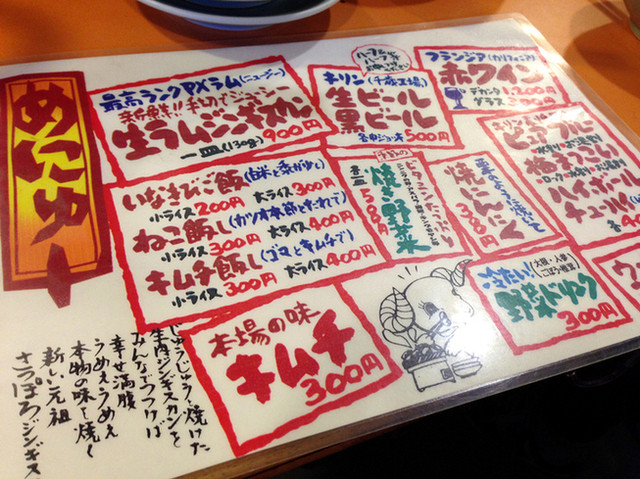 めんゅー
最高ランクPXラム(ニュージー)
新鮮!!
生ラムジンギスカン
一皿(130g) 900円
いなきびご飯
小ライス 200円 大ライス 300円
ねこ飯し
小ライス 300円 大ライス 400円
キムチ飯し(ゴマとキムなど)
小ライス 300円 大ライス 400円
本場の味
キムチ
300円
ハーフ&
ハーフ
キリン(千歳工場)
生ビール
黒ビール
各中ジョッキ 500円
フランジア(カリフォルニア)
赤ワイン
デカンタ 1,200円
グラス 300円
季節の
焼き野菜
一皿 500円
焼にんにく
300円
冷たい!
大根・人参
ごぼう・椎茸
野菜ドリンク
300円
ハイボール
じゅうじゅう焼けた
生肉ジンギスカンを
みんなでつつけば
幸せ満腹
うめえうめえ
本物の味
新しい元祖
さっぽろジンギス